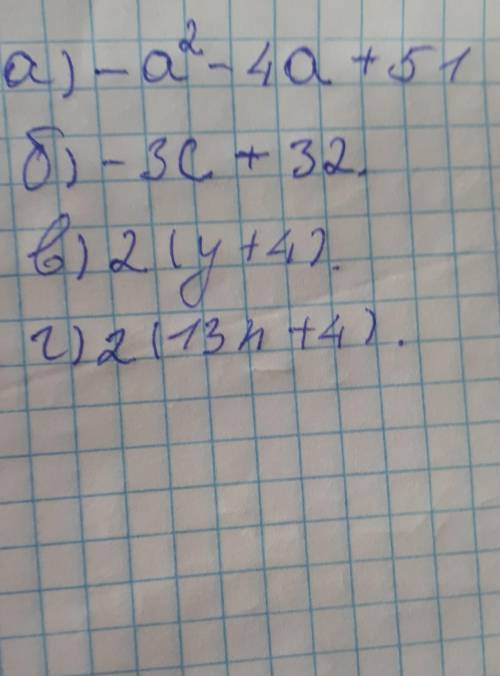 а) -a² - 4a + 51
б) -3c + 32.
в) 2(y+4).
г) 2(13n+4).